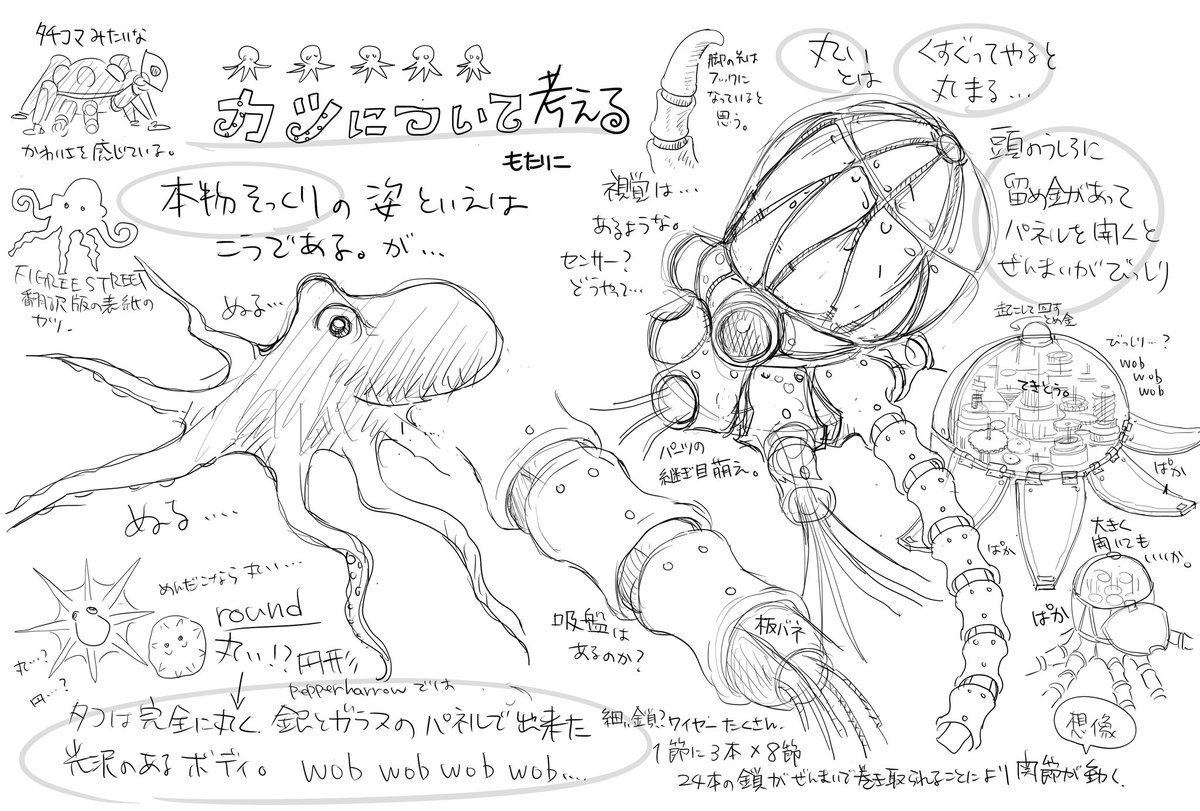 タチコマみたいな
かわいさを感じている。
カツについて考える
もたりに
本物そっくりの姿といえば
こうである。が…
FIGREE STREET
翻訳版の表紙の
カツ.
ぬる…
ぬる….
脚の先は
フックに
なっていると
思う。
視覚は…
あるような。
センサー?
どうやって…
丸い
とは
くすぐってやると
丸まる…
頭のうしろに
留め金があって
パネルを開くと
ぜんまいがびっしり
起こして回す
とめ金
びっしり…?
wob
wob
wob
てきとう。
ぱか
ぱか
大きく
開いても
いいか。
ぱか
パーツの
継ぎ目萌え。
吸盤は
あるのか?
板バネ
めんだこなら丸い…
round
丸い!?円形
丸…?
円…?
pepperharrowでは
タコは完全に丸く、銀とガラスのパネルで出来た
光沢のあるボディ。 wob wob wob wob….
細い鎖?ワイヤーたくさん.
1節に3本×8節
24本の鎖がぜんまいで巻き取られることにより関節が動く.
想像